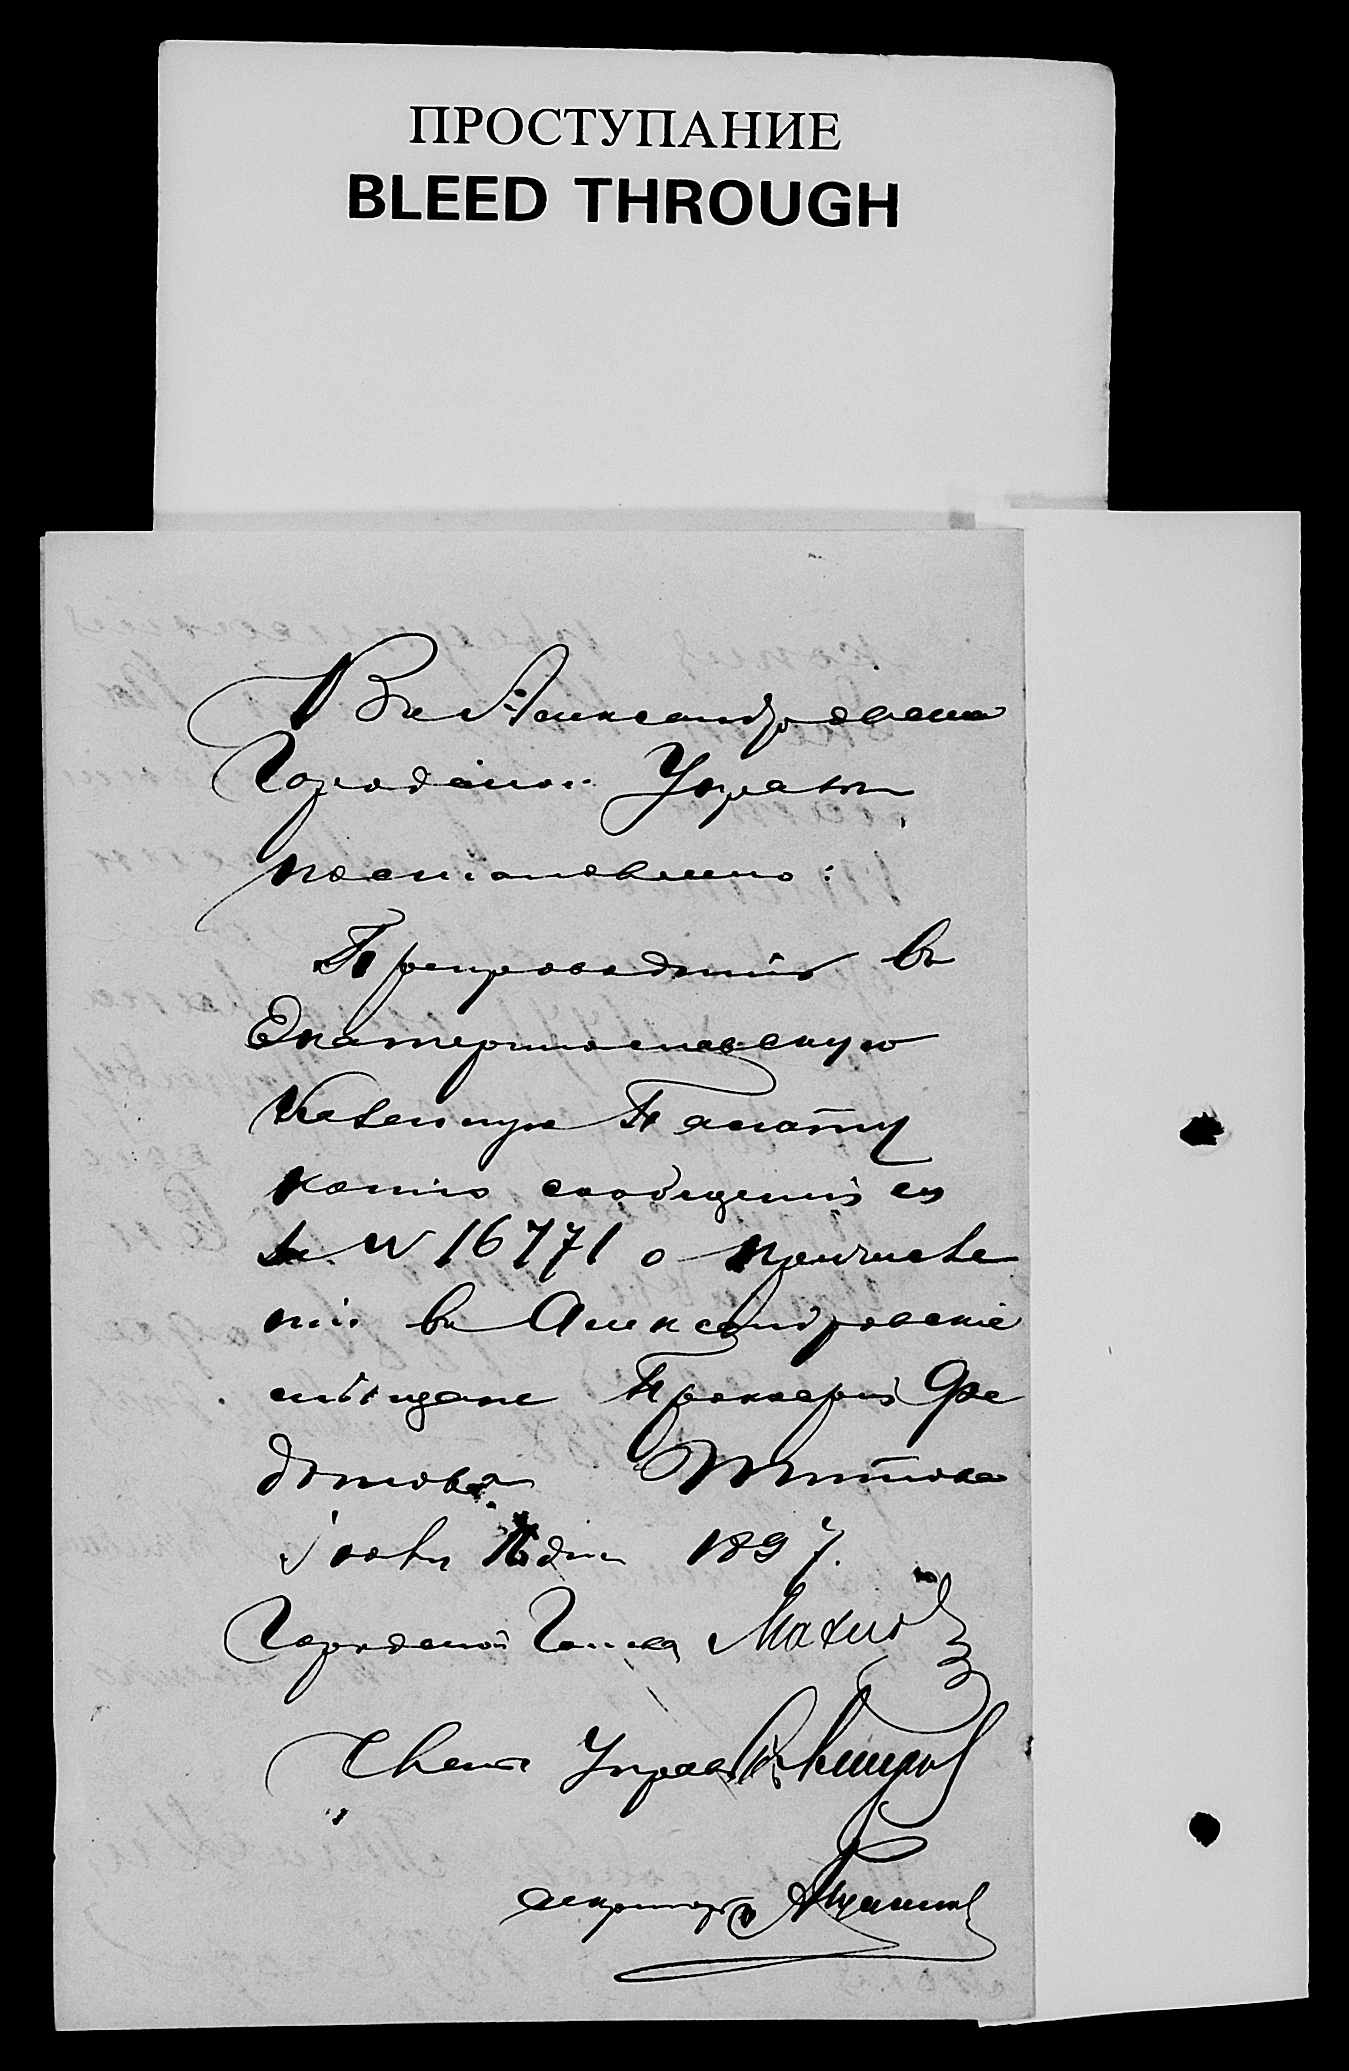 ПРОСТУПАНИЕ
BLEED THROUGH
Въ Александровской
Городской Управѣ
постановлено:
Препроводить въ
Екатеринославскую
Казенную Палату
копію сообщенія ея
за № 16771 о причисле
ніи въ Александровскіе
мѣщане Прокофія Фе
дотова Титова
Городской Голова Махно
Членъ Управы
Секретарь